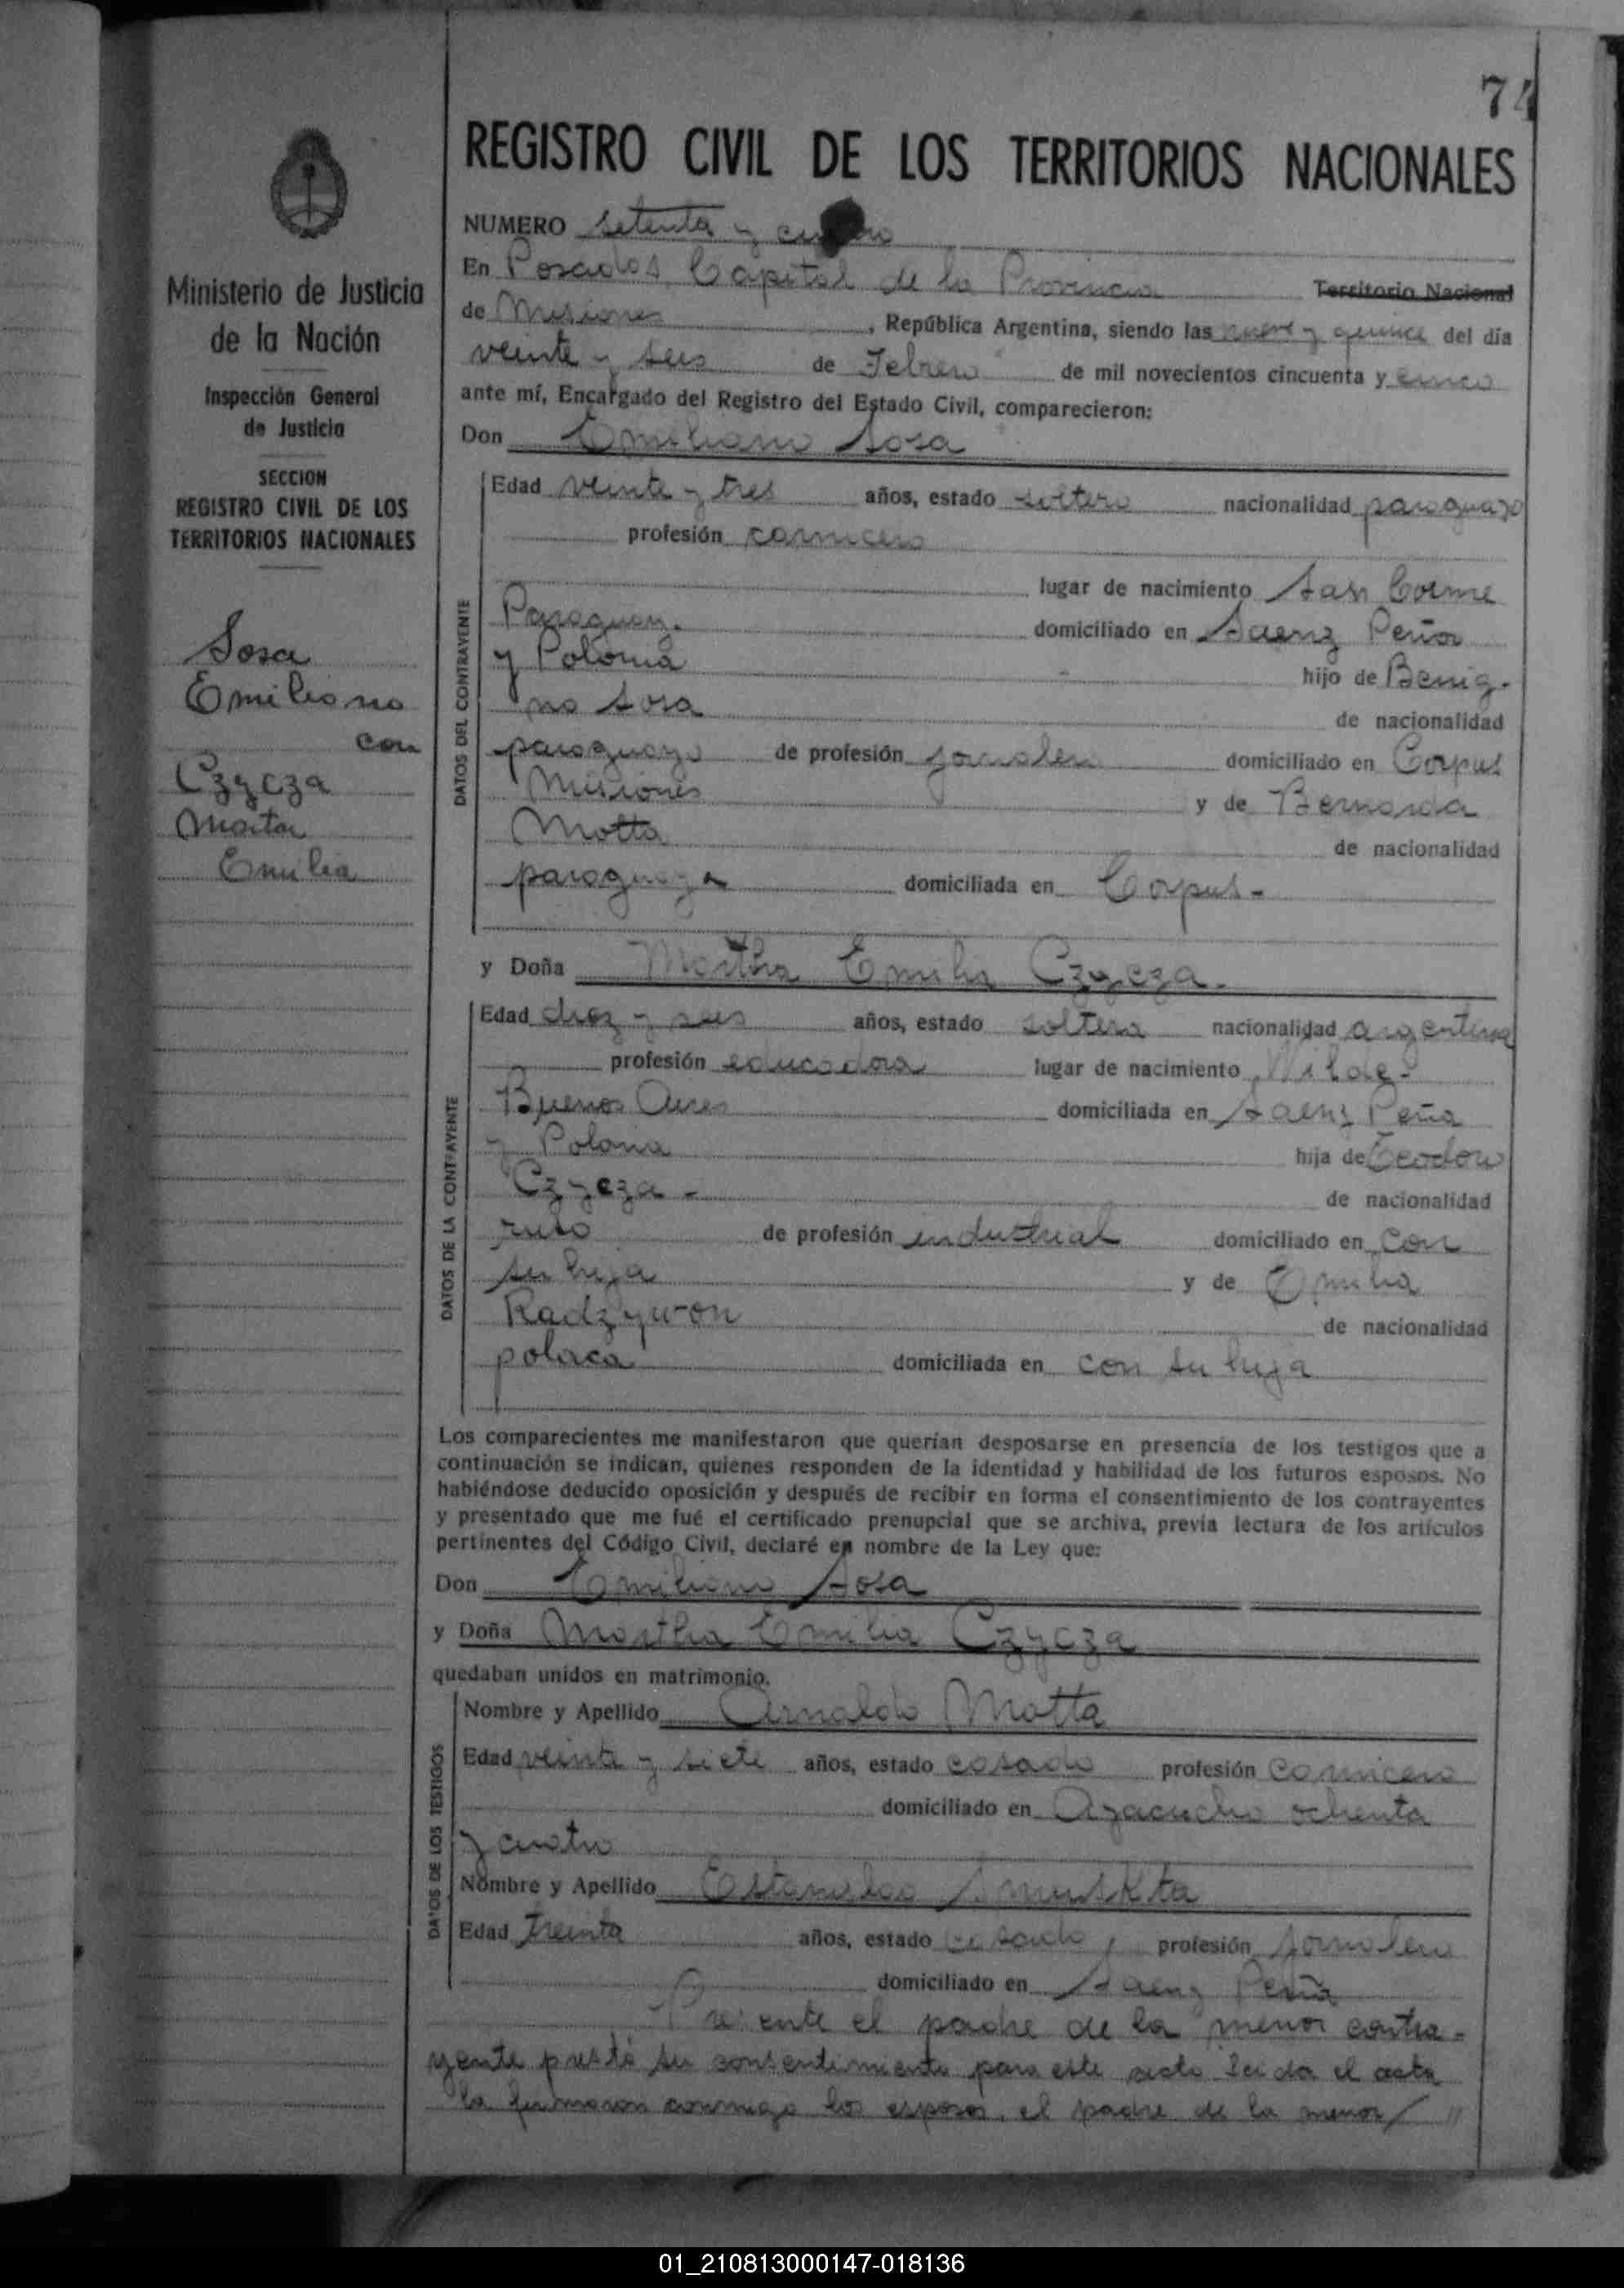 74
REGISTRO CIVIL DE LOS TERRITORIOS NACIONALES
Ministerio de Justicia
de la Nación
Inspección General
de Justicia
SECCION
REGISTRO CIVIL DE LOS
TERRITORIOS NACIONALES
Sosa
Emiliano
con
Czycza
Marta
Emilia
NUMERO setenta y cuatro
En Posadas, Capital de la Provincia Territorio Nacional
de Misiones, República Argentina, siendo las nueve y quince del día
veinte y seis de Febrero de mil novecientos cincuenta y cinco
ante mí, Encargado del Registro del Estado Civil, comparecieron:
Don Emiliano Sosa
DATOS DEL CONTRAYENTE
Edad veinte y tres años, estado soltero nacionalidad paraguayo
profesión carnicero
lugar de nacimiento San Cosme
Paraguay. domiciliado en Saenz Peña
y Polonia hijo de Benig-
no Sosa de nacionalidad
paraguayo de profesión jornalero domiciliado en Corpus
Misiones y de Bernarda
Motta de nacionalidad
paraguaya domiciliada en Corpus-
y Doña Martha Emilia Czycza.
DATOS DE LA CONTRAYENTE
Edad diez y seis años, estado soltera nacionalidad argentina
profesión educadora lugar de nacimiento Wilde-
Buenos Aires domiciliada en Saenz Peña
y Polonia hija de Teodoro
Czycza- de nacionalidad
ruso de profesión industrial domiciliado en con
su hija y de Emilia
Radzywon de nacionalidad
polaca domiciliada en con su hija
Los comparecientes me manifestaron que querían desposarse en presencia de los testigos que a
continuación se indican, quienes responden de la identidad y habilidad de los futuros esposos. No
habiéndose deducido oposición y después de recibir en forma el consentimiento de los contrayentes
y presentado que me fué el certificado prenupcial que se archiva, previa lectura de los artículos
pertinentes del Código Civil, declaré en nombre de la Ley que:
Don Emiliano Sosa
y Doña Martha Emilia Czycza
quedaban unidos en matrimonio.
DATOS DE LOS TESTIGOS
Nombre y Apellido Arnaldo Motta
Edad veinte y siete años, estado casado profesión carnicero
domiciliado en Ayacucho ochenta
y cuatro
Nombre y Apellido Estanislao
Edad treinta años, estado casado, profesión jornalero
domiciliado en Saenz Peña
Presente el padre de la menor contra-
yente prestó su consentimiento para este acto. Leida el acta
la firmaron conmigo los esposos, el padre de la menor/ "
01_210813000147-018136